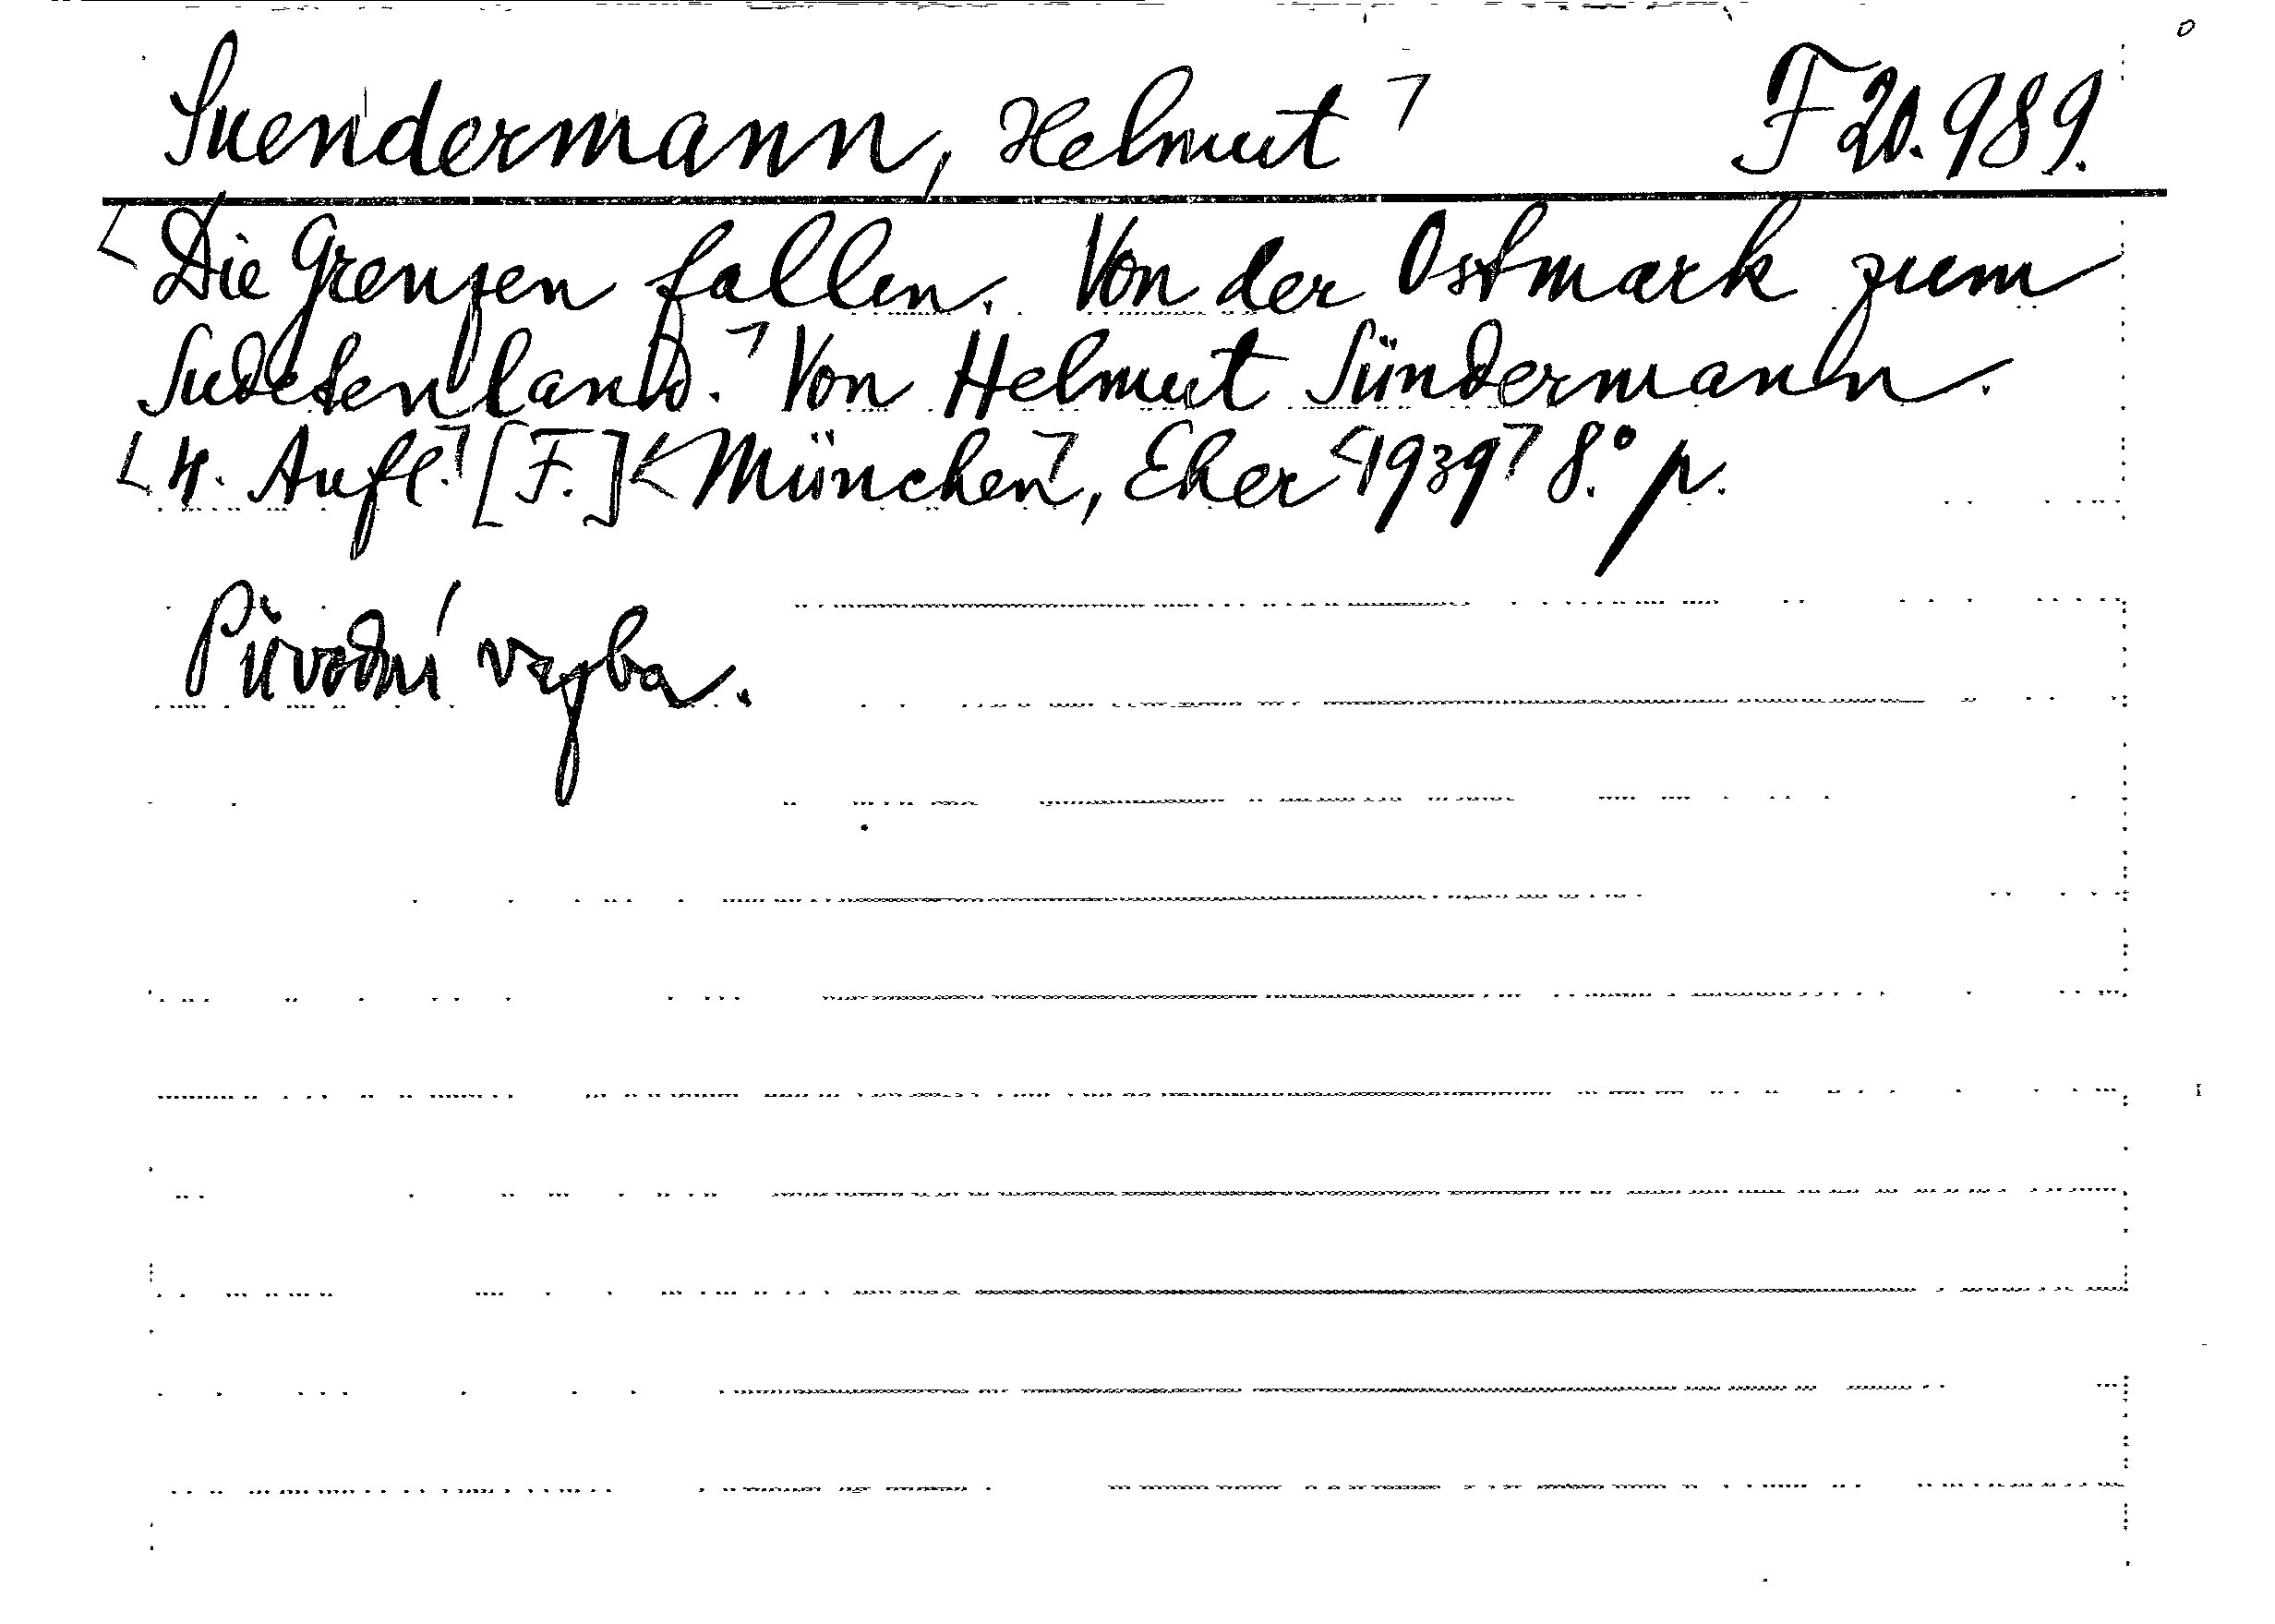 Suendermann, Helmut ⌝ F 20.989.
<Die Grenzen fallen. Von der Ostmark zum
Sudetenland.⌝ Von Helmut Sündermann.
<4. Aufl.⌝ [F.] <München⌝, Eher <1939⌝ 8.° p.
Původní vazba.